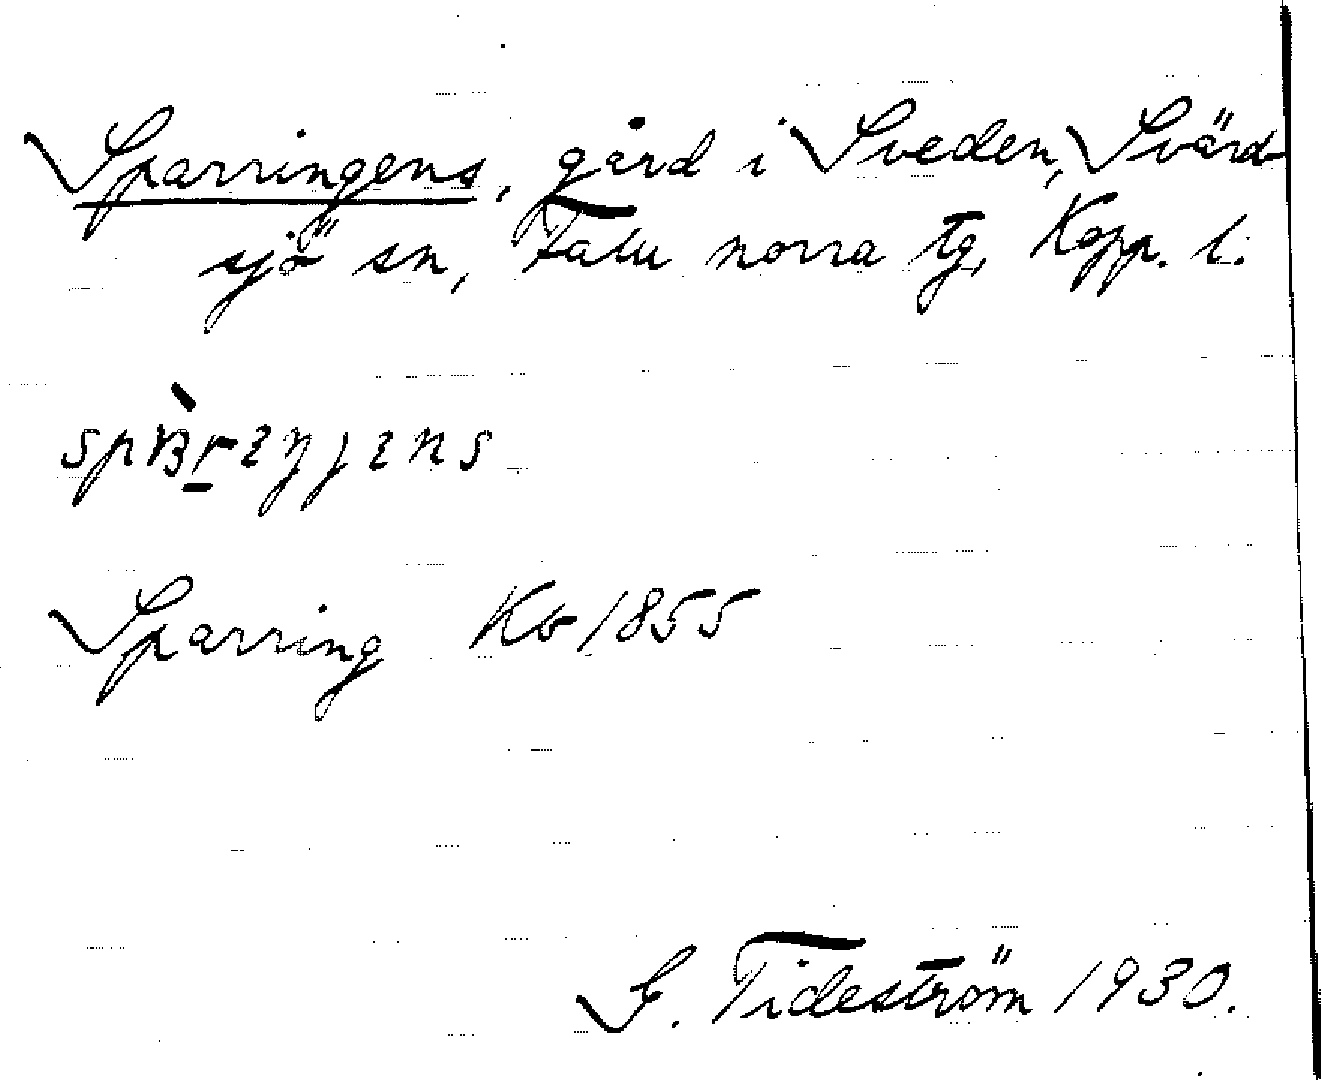 Sparringens, gård i Sveden, Svärd-
sjö sn, Falu norra tg, Kopp. l.
Sparring Kb 1855
G. Tideström 1930.